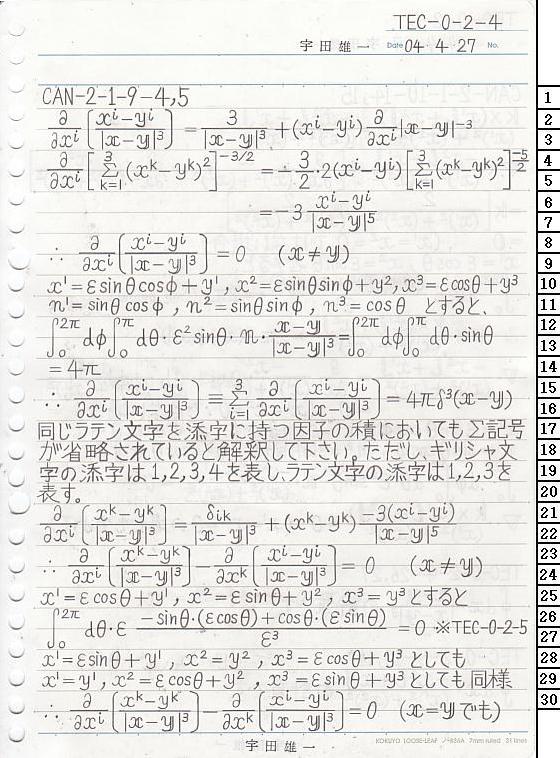 TEC-0-2-4
宇田雄一 Date 04・4・27 No.
CAN-2-1-9-4,5
∂/∂xⁱ [(xⁱ−yⁱ)/|x−y|³] = 3/|x−y|³ + (xⁱ−yⁱ) ∂/∂xⁱ |x−y|⁻³
∂/∂xⁱ [Σ_{k=1}^{3} (xᵏ−yᵏ)²]^{−3/2} = −3/2・2(xⁱ−yⁱ) [Σ_{k=1}^{3} (xᵏ−yᵏ)²]^{−5/2}
= −3 (xⁱ−yⁱ)/|x−y|⁵
∴ ∂/∂xⁱ [(xⁱ−yⁱ)/|x−y|³] = 0 (x≠y)
x¹=εsinθcosφ+y¹, x²=εsinθsinφ+y², x³=εcosθ+y³
n¹=sinθcosφ, n²=sinθsinφ, n³=cosθ とすると、
∫₀^{2π}dφ∫₀^{π}dθ・ε²sinθ・n・(x−y)/|x−y|³=∫₀^{2π}dφ∫₀^{π}dθ・sinθ
=4π
∴ ∂/∂xⁱ [(xⁱ−yⁱ)/|x−y|³] ≡ Σ_{i=1}^{3} ∂/∂xⁱ [(xⁱ−yⁱ)/|x−y|³] = 4πδ³(x−y)
同じラテン文字を添字に持つ因子の積においてもΣ記号
が省略されていると解釈して下さい。ただし、ギリシャ文
字の添字は1,2,3,4を表し、ラテン文字の添字は1,2,3を
表す。
∂/∂xⁱ [(xᵏ−yᵏ)/|x−y|³] = δᵢₖ/|x−y|³ + (xᵏ−yᵏ) −3(xⁱ−yⁱ)/|x−y|⁵
∴ ∂/∂xⁱ [(xᵏ−yᵏ)/|x−y|³] − ∂/∂xᵏ [(xⁱ−yⁱ)/|x−y|³] = 0 (x≠y)
x¹=εcosθ+y¹, x²=εsinθ+y², x³=y³とすると
∫₀^{2π}dθ・ε (−sinθ・(εcosθ)+cosθ・(εsinθ))/ε³ = 0 ※TEC-0-2-5
x¹=εsinθ+y¹, x²=y², x³=εcosθ+y³としても
x¹=y¹, x²=εcosθ+y², x³=εsinθ+y³としても同様。
∴ ∂/∂xⁱ [(xᵏ−yᵏ)/|x−y|³] − ∂/∂xᵏ [(xⁱ−yⁱ)/|x−y|³] = 0 (x=yでも)
宇田雄一
KOKUYO LOOSE-LEAF ノ-836A 7mm ruled 31 lines
1
2
3
4
5
6
7
8
9
10
11
12
13
14
15
16
17
18
19
20
21
22
23
24
25
26
27
28
29
30